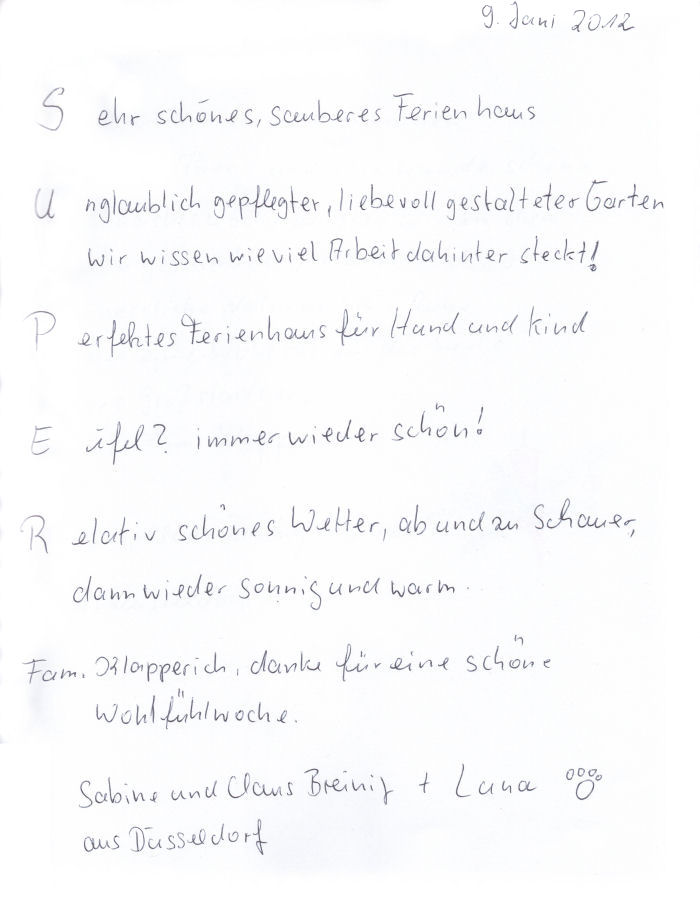 9. Juni 2012
S ehr schönes, sauberes Ferienhaus
U nglaublich gepflegter, liebevoll gestalteter Garten
wir wissen wieviel Arbeit dahinter steckt!
P erfektes Ferienhaus für Hund und Kind
E ifel? immer wieder schön!
R elativ schönes Wetter, ab und zu Schauer,
dann wieder sonnig und warm.
Fam. Klapperich, danke für eine schöne
Wohlfühlwoche.
Sabine und Claus Breinig + Luna
aus Düsseldorf